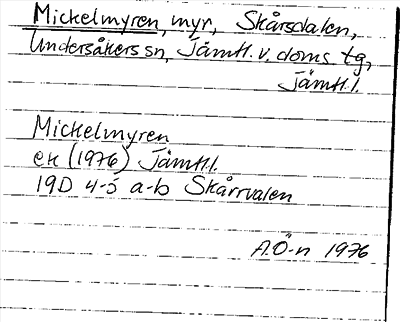 Mickelmyren, myr, Skårsdalen,
Undersåkers sn, Jämtl. v. doms. tg,
Jämtl.l.
Mickelmyren
ek (1976) Jämtl.l.
19D 4-5 a-b Skårrvalen
A.Ö-n 1976